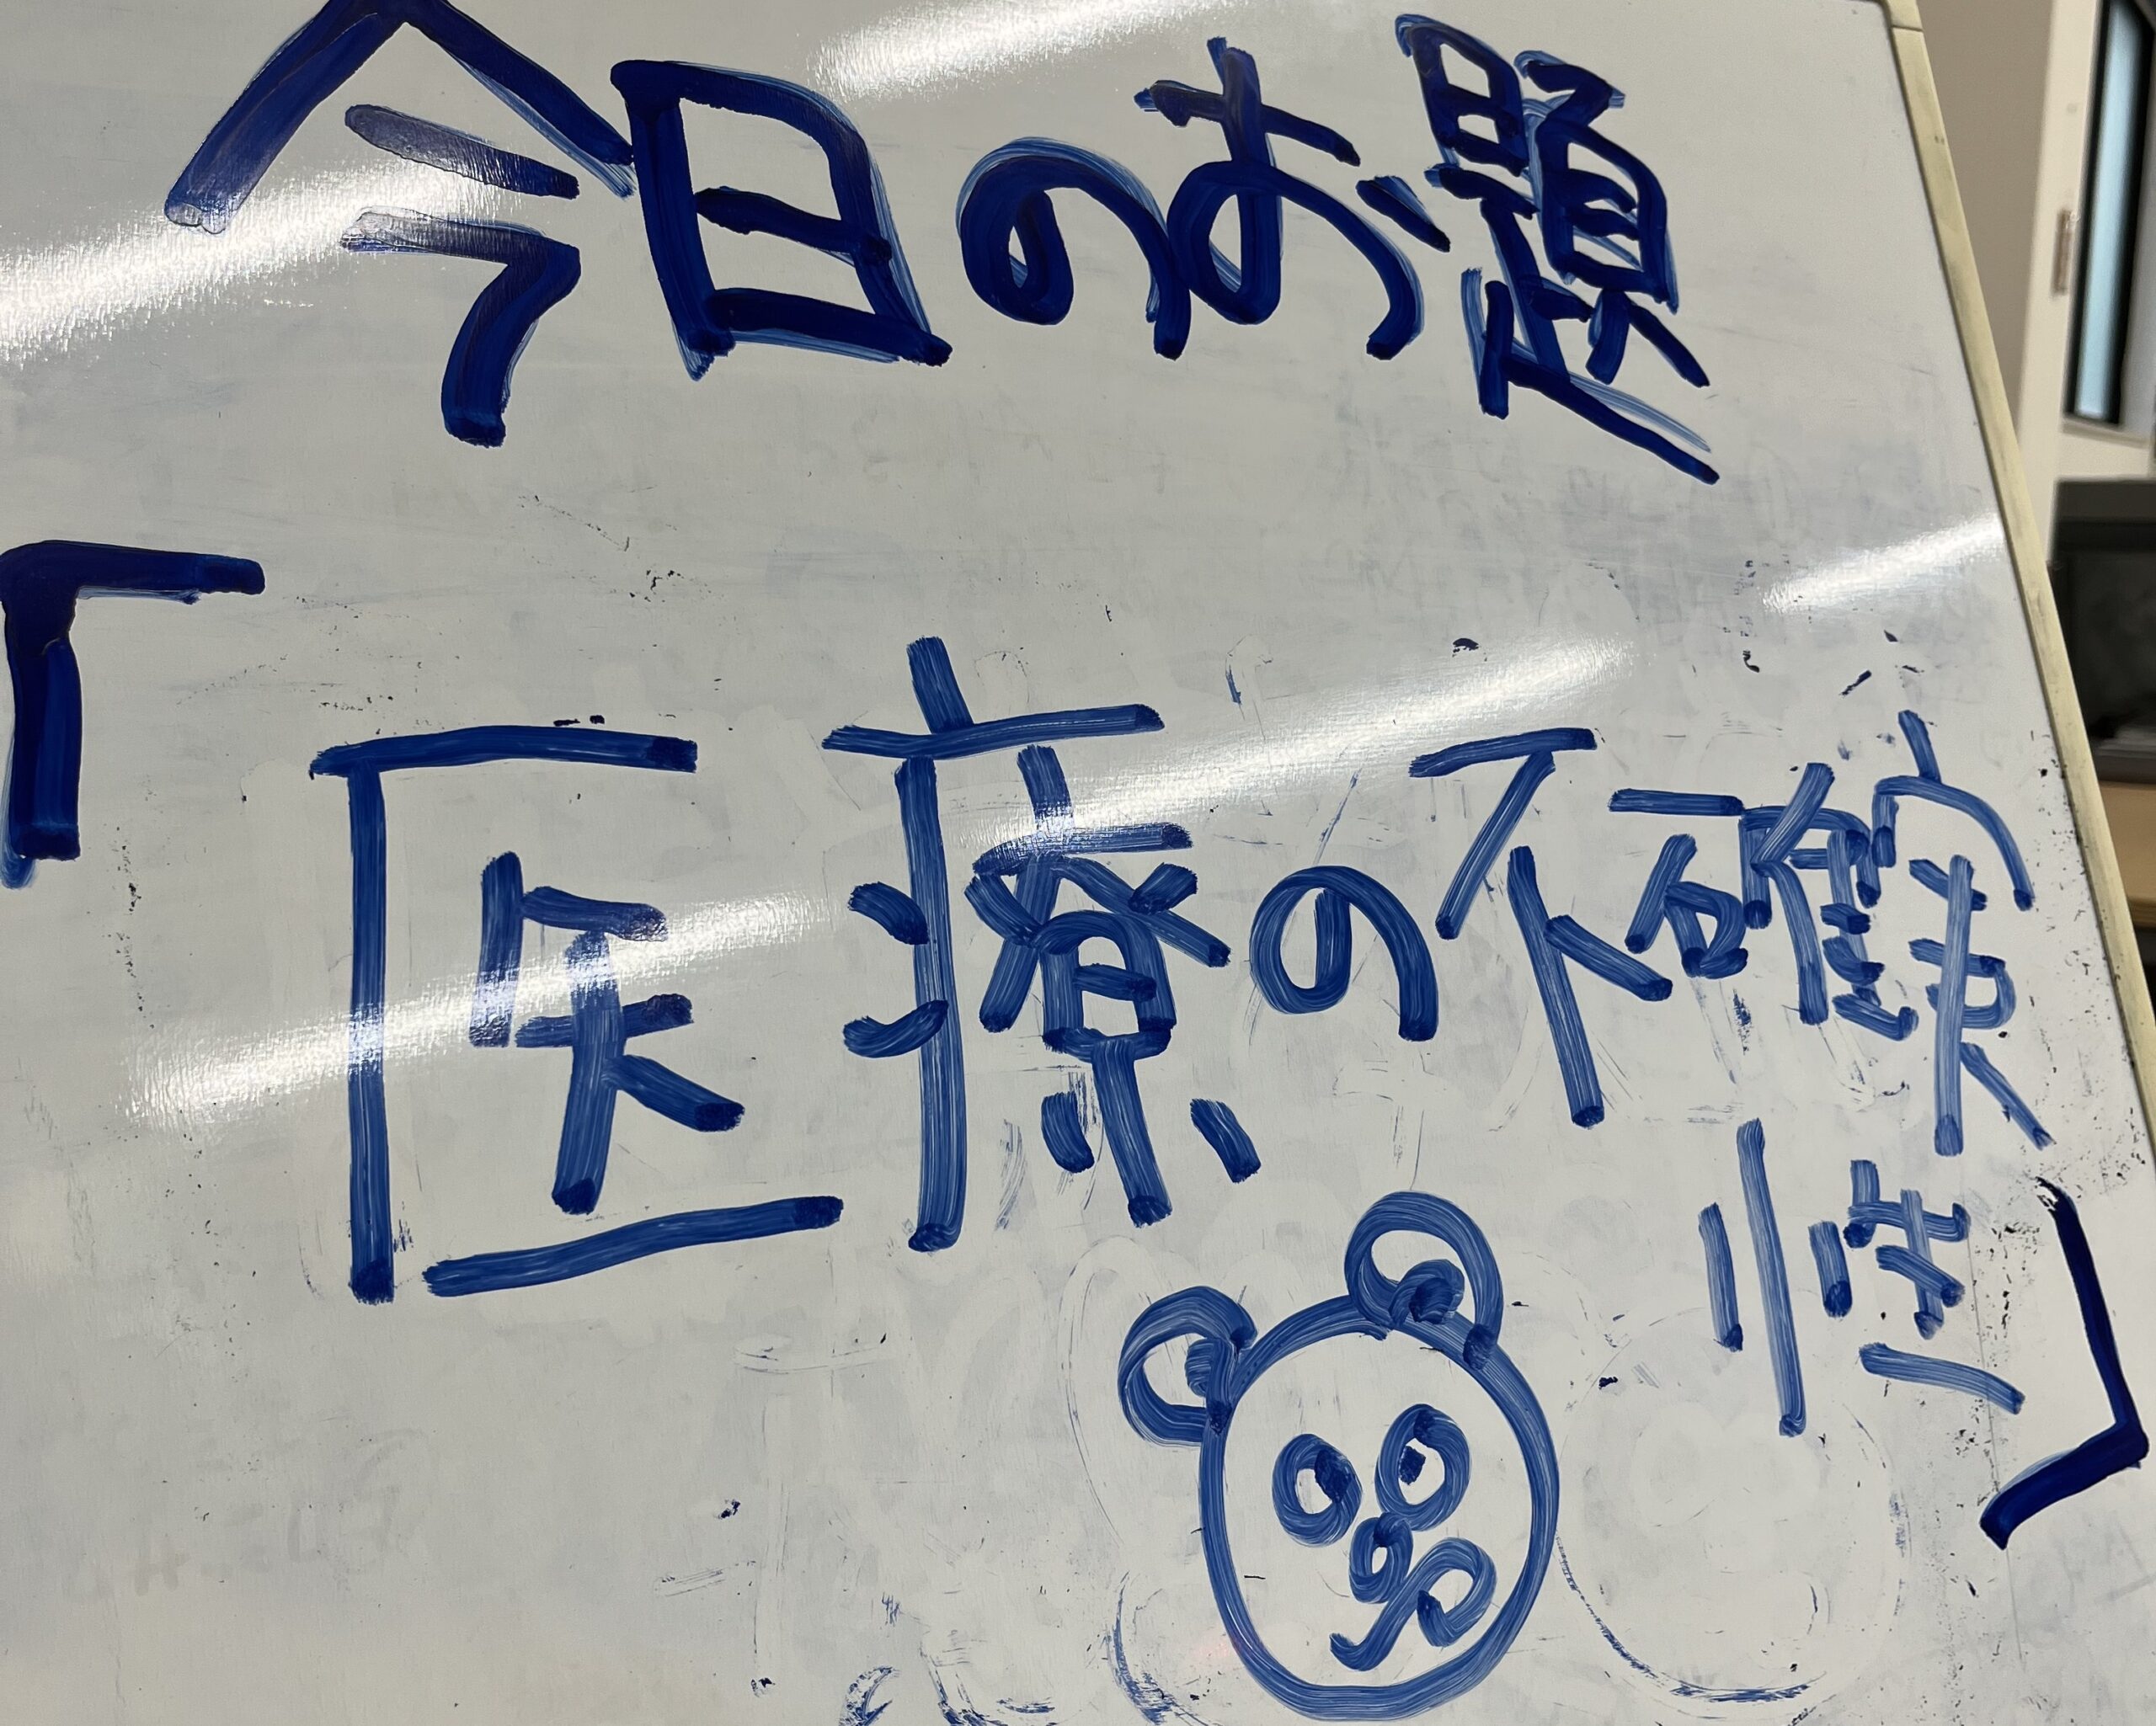 今日のお題
「医療の不確実
性」